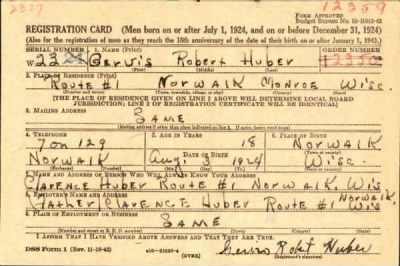 2327 12359
Form Approved
Budget Bureau No. 33-R012-42
REGISTRATION CARD (Men born on or after July 1, 1924, and on or before December 31, 1924)
(Also for the registration of men as they reach the 18th anniversary of the date of their birth on or after January 1, 1943.)
SERIAL NUMBER 1. NAME (Print) ORDER NUMBER
W 22 Gervis Robert Huber
(First) (Middle) (Last)
2. PLACE OF RESIDENCE (Print)
Route #1 Norwalk Monroe Wisc.
(Number and street) (Town, township, village, or city) (County) (State)
[THE PLACE OF RESIDENCE GIVEN ON LINE 2 ABOVE WILL DETERMINE LOCAL BOARD
JURISDICTION; LINE 2 OF REGISTRATION CERTIFICATE WILL BE IDENTICAL]
3. MAILING ADDRESS
SAME
(Mailing address if other than place indicated on line 2. If same, insert word same)
4. TELEPHONE 5. AGE IN YEARS 6. PLACE OF BIRTH
7 on 129 18 Norwalk
DATE OF BIRTH (Town or county)
Norwalk Aug. 3 1924 Wisc.
(Exchange) (Number) (Mo.) (Day) (Yr.) (State or country)
7. NAME AND ADDRESS OF PERSON WHO WILL ALWAYS KNOW YOUR ADDRESS
Clarence Huber Route #1 Norwalk, Wis
8. EMPLOYER'S NAME AND ADDRESS Norwalk
(Father) Clarence Huber Route #1 Wis
9. PLACE OF EMPLOYMENT OR BUSINESS
SAME
(Number and street or R. F. D. number) (Town) (County) (State)
I AFFIRM THAT I HAVE VERIFIED ABOVE ANSWERS AND THAT THEY ARE TRUE.
DSS Form 1 (Rev. 11-16-42) (OVER) Gervis Robt Huber
(Registrant's signature)